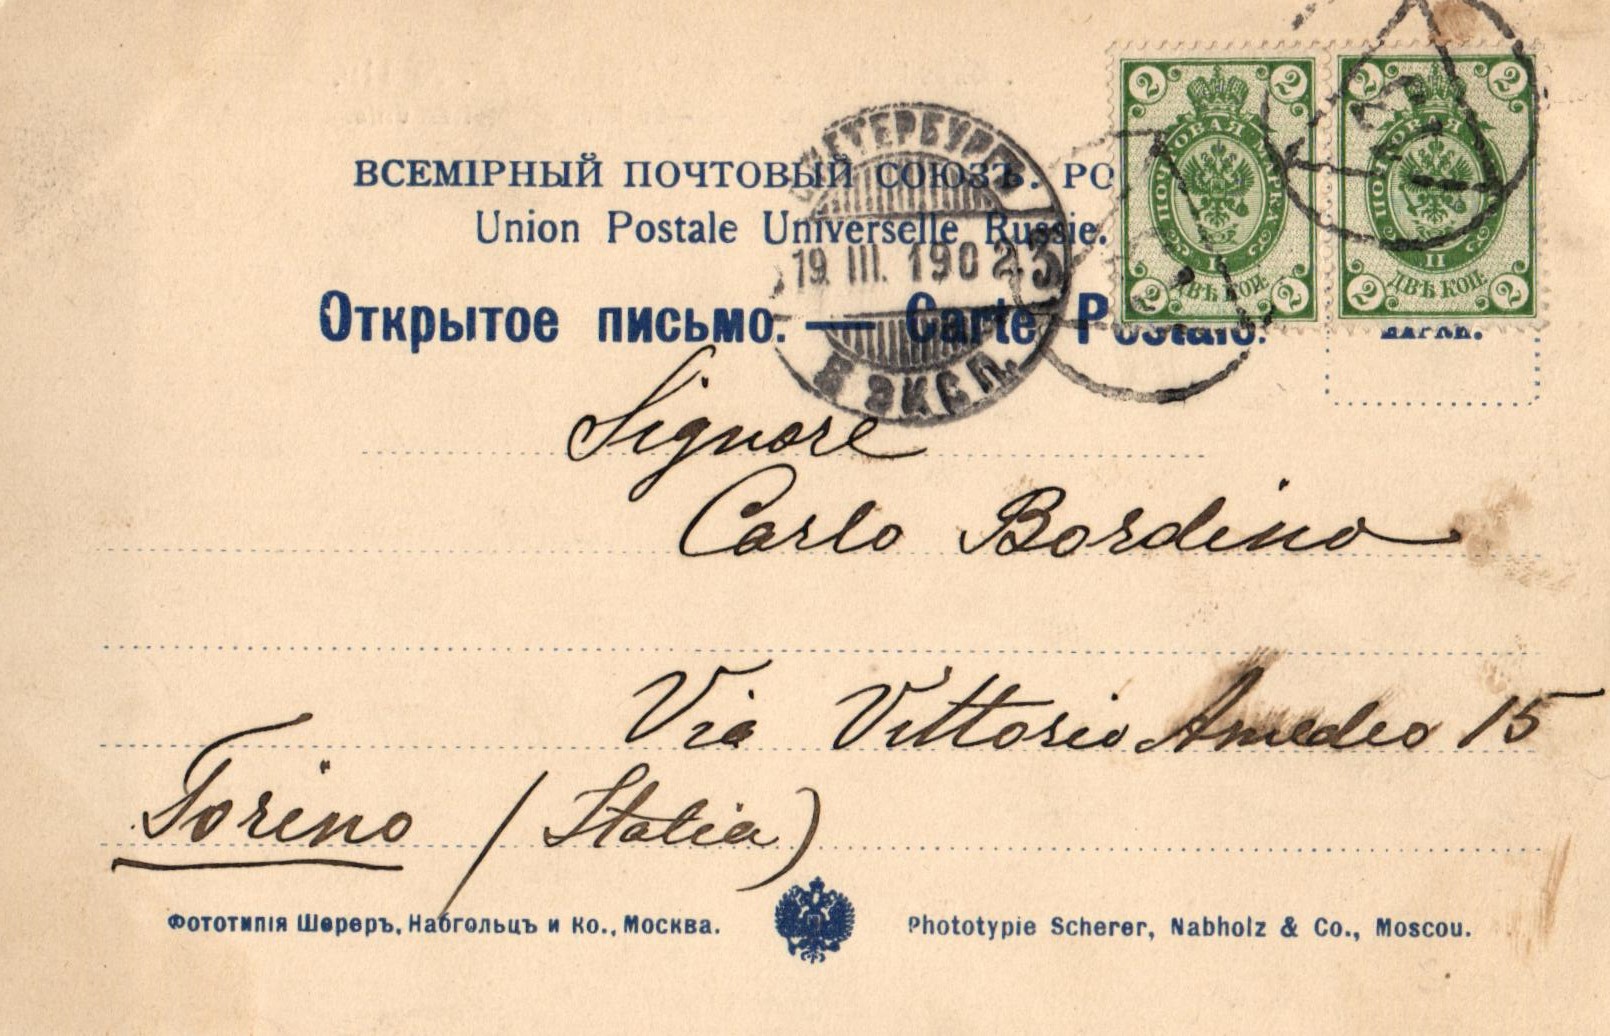 ВСЕМІРНЫЙ ПОЧТОВЫЙ СОЮЗЪ. РО
Union Postale Universelle Russie.
Открытое письмо. — Carte Postale.
МАРКИ.
ПЕТЕРБУРГЪ
19. III. 1902. 3
ЭКСП.
2 2
ПОЧТОВАЯ МАРКА
ДВѢ КОП.
2 2
2 2
ПОЧТОВАЯ
II
ДВѢ КОП.
2 2
Signore
Carlo Bordino
Via Vittorio Amedeo 15
Torino (Italia)
Фототипія Шереръ, Набгольцъ и Ко., Москва.
Phototypie Scherer, Nabholz & Co., Moscou.